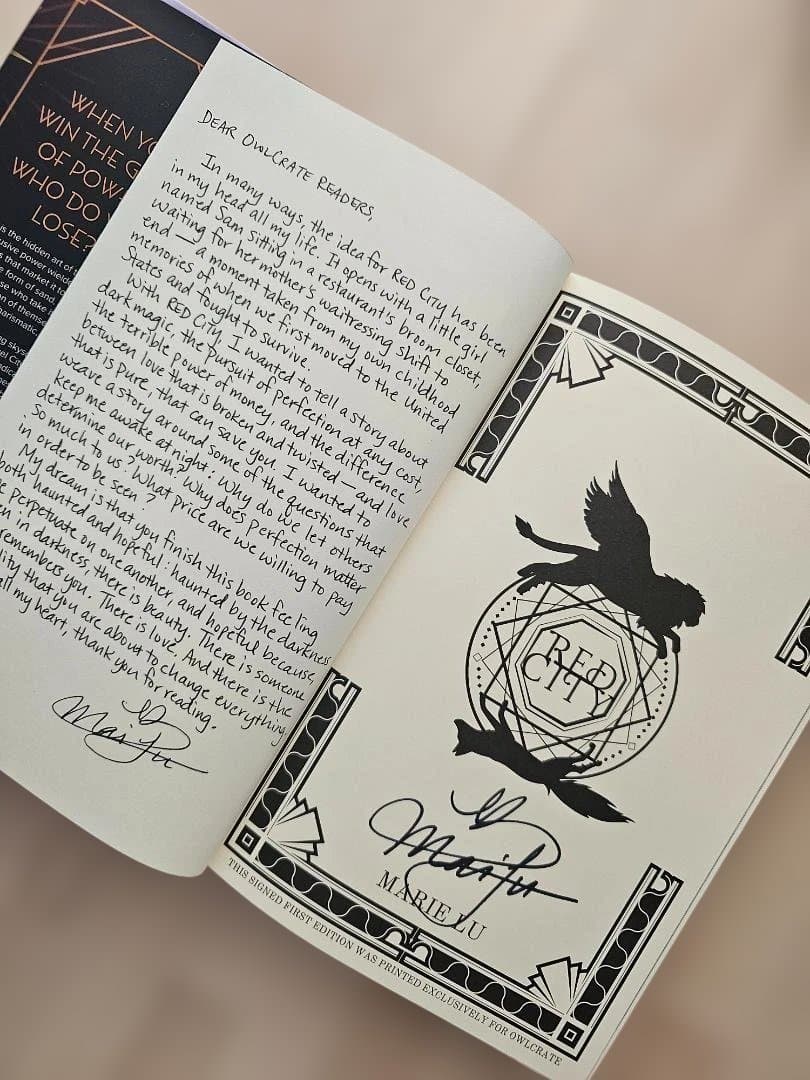 WHEN YO
WIN THE G
OF POW
WHO DO Y
LOSE?
is the hidden art of
usive power wielde
s that market it to
e form of sand.
se who take
on of themse
arismatic.
ng skys
el Cit
ndica
DEAR OWLCRATE READERS,
In many ways, the idea for RED CITY has been
in my head all my life. It opens with a little girl
named Sam sitting in a restaurant's broom closet,
waiting for her mother's waitressing shift to
end — a moment taken from my own childhood
memories of when we first moved to the United
States and fought to survive.
With RED CITY, I wanted to tell a story about
dark magic, the pursuit of perfection at any cost,
the terrible power of money, and the difference
between love that is broken and twisted — and love
that is pure, that can save you. I wanted to
weave a story around some of the questions that
keep me awake at night: Why do we let others
determine our worth? Why does perfection matter
so much to us? What price are we willing to pay
in order to be seen?
My dream is that you finish this book feeling
both haunted and hopeful: haunted by the darkness
perpetuate on one another, and hopeful because,
in darkness, there is beauty. There is someone
remembers you. There is love. And there is the
lity that you are about to change everything.
all my heart, thank you for reading.
Marie Lu
RED
CITY
Marie Lu
MARIE LU
THIS SIGNED FIRST EDITION WAS PRINTED EXCLUSIVELY FOR OWLCRATE